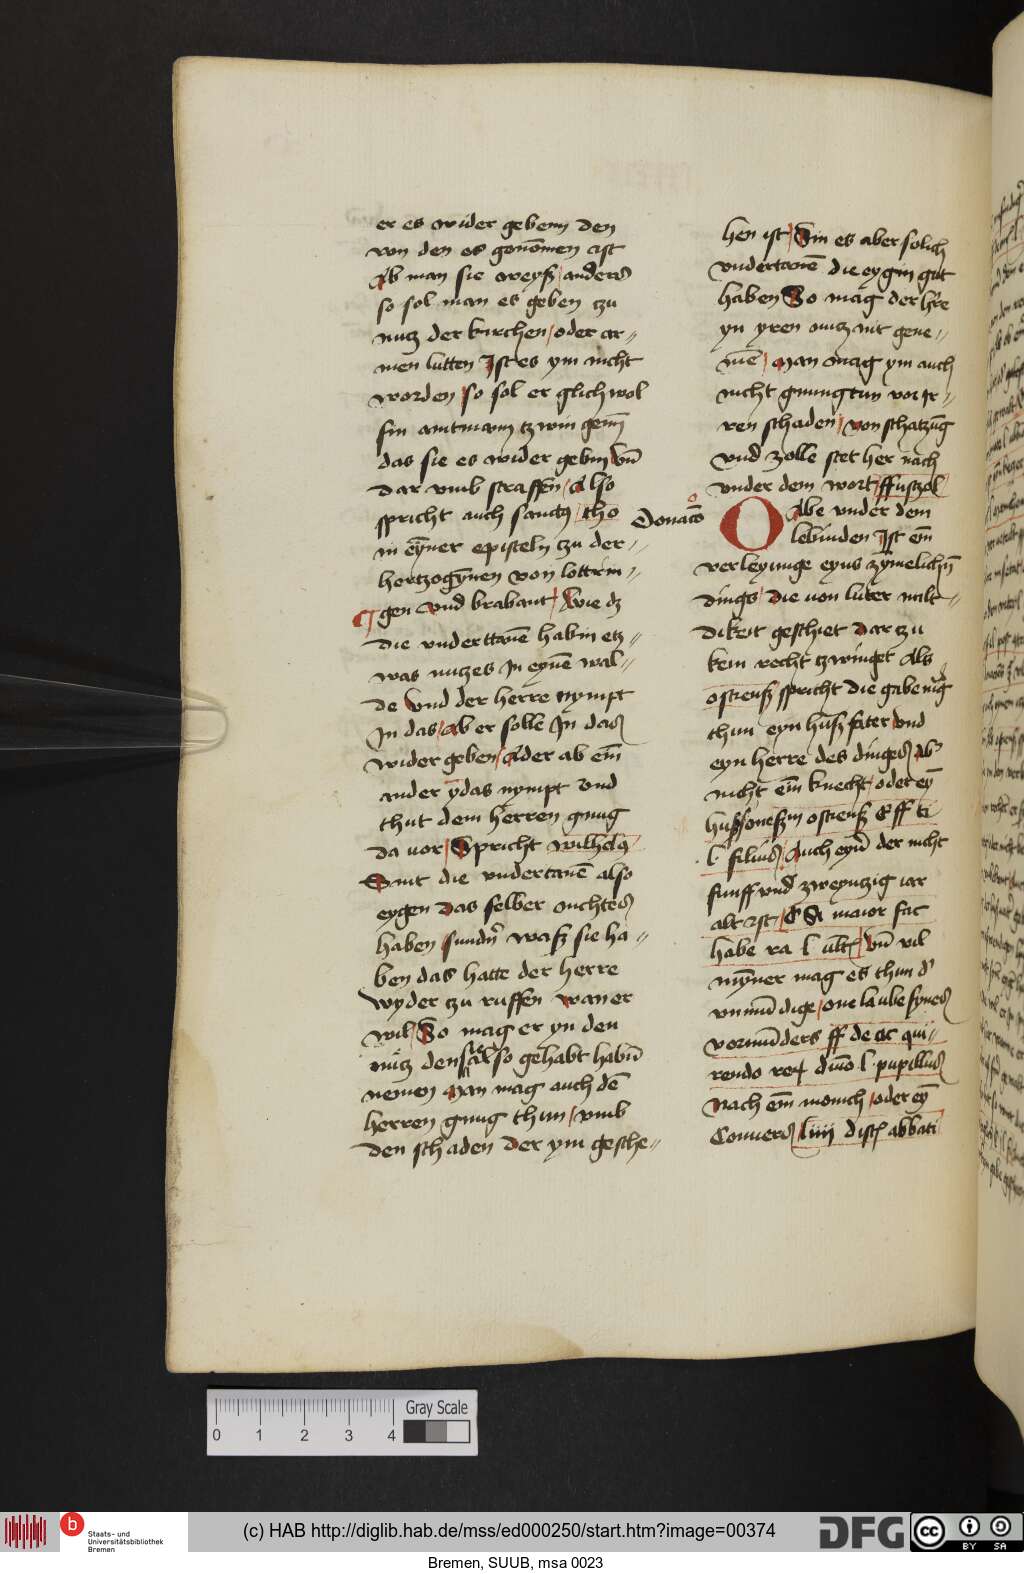 er es wider gebenn den
von den es genōmen ist
Ab man sie weyß anders
so sol man es geben czu
nutz der kirchen oder ar-
men lutten Ist es ym nicht
worden so sol er glich wol
sin amtmann tzwingenn
das sie es wider gebin vn̄
dar vmb straffen Also
spricht auch sanctus tho
in eyner episteln czu der
hertzogynnen von lottrin-
gen vnd brabant Wie dz
die vnderttanē habin etz-
was nutzes In eynē wal-
de vnd der herre nympt
In das Ab er solle In das
wider geben Ader ab eīn
ander ydas nympt vnd
thut dem herren gnug
da vor Spricht wilhelmus
Sint die vndertanē also
eygen das selber nichtes
haben sundern waß sie ha-
ben das hatte der herre
wyder czu ruffen wan er
wil So mag er yn den
nutz den sie also gehabt habin
nemen Man mag auch dē
herren gnug thun vmb
den schaden der ym gesche-
hen ist Sin es aber solich
vndertanē die eygin gut
haben So mag der h're
yn yren nutz nit gene-
mē Man mag ym auch
nicht gnung tun vor ir-
ren schaden von schatzūg
vnd zolle stet her nach
vnder dem wort ffurszol
Donacō
Gabe vnder dem
lebinden Ist ein
verleyunge eyns zymelichn̄
dings die von luter milt-
dikeit geschiet dar czu
kein recht tzwinget Als
ostienß spricht die gabe mag
thun eyn huß fater vnd
eyn herre des dinges Ab'
nicht eīn knecht oder ey
hußsone ß in ostienß E ff ti
l filius Auch eyn der nicht
funff vnd zweyntzig iar
alt ist E Si maior fac
habe ra l vlt vn̄ vil
mynner mag es thun d'
vnmūdige one laube synes
vormūders ff de ac qui-
rendo rerum diuo l pupillus
Nach eīn monich oder ey
Conuers liiii dist abbati
0 1 2 3 4
Gray Scale
Staats- und
Universitätsbibliothek
Bremen
(c) HAB http://diglib.hab.de/mss/ed000250/start.htm?image=00374
DFG
cc BY SA
Bremen, SUUB, msa 0023